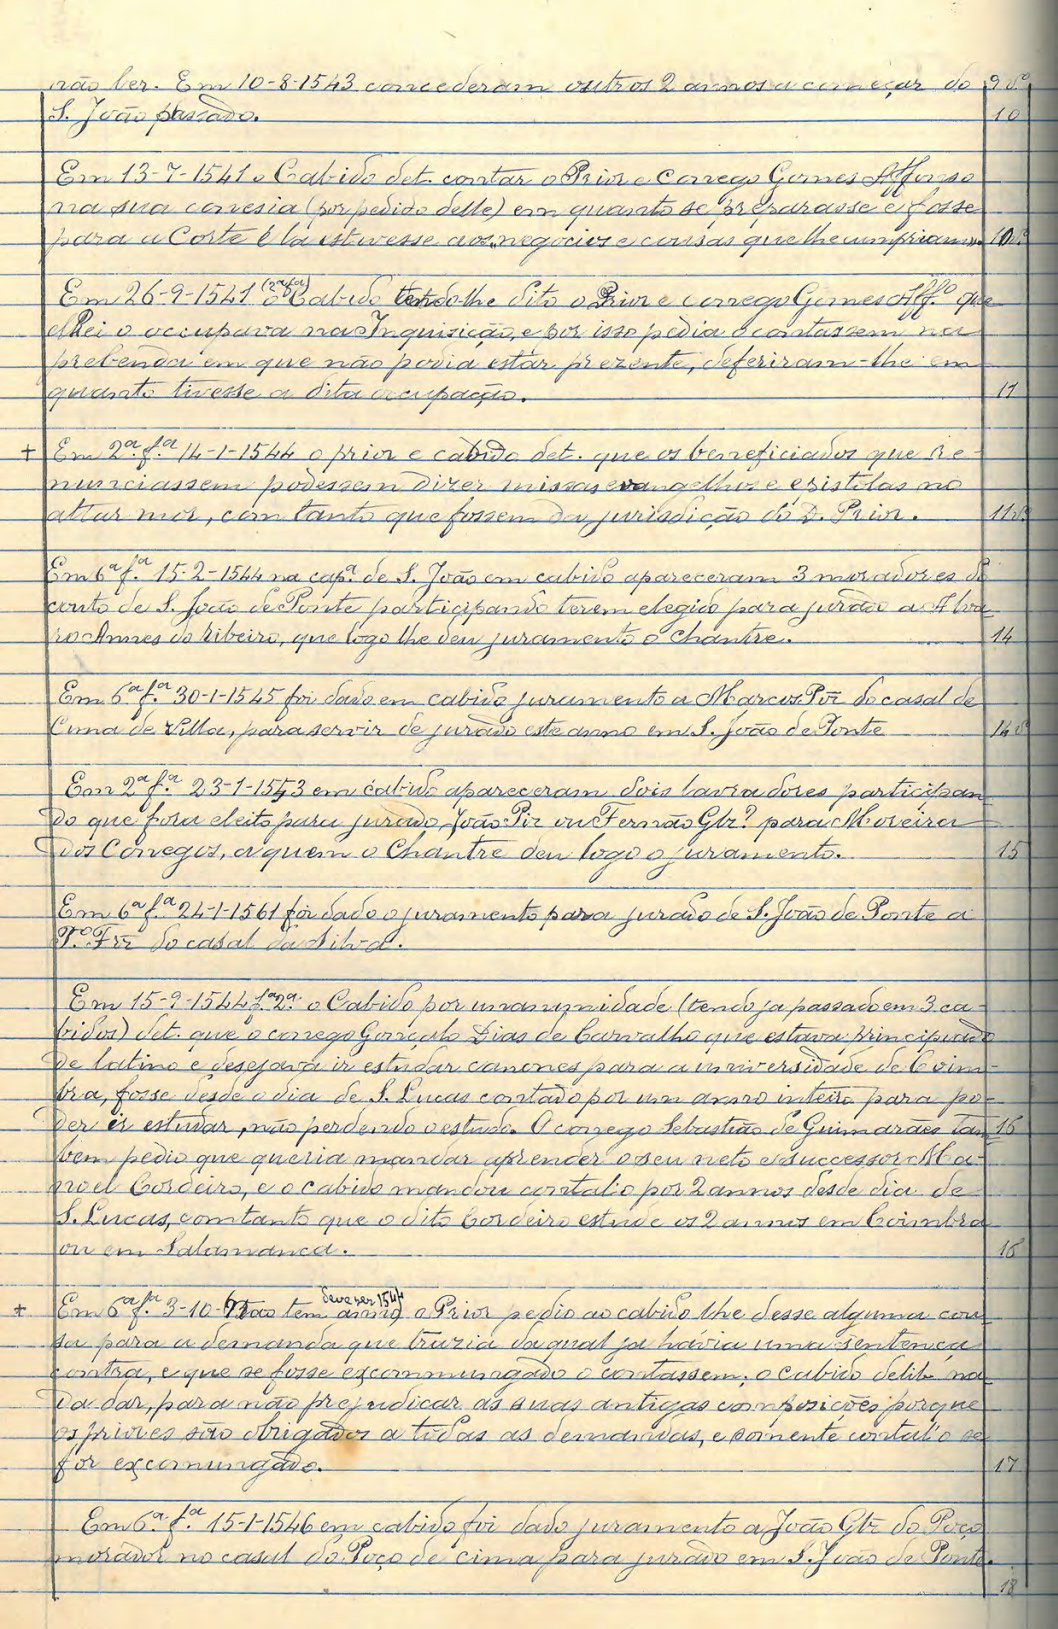 não ler. Em 10-8-1543 concederam outros 2 annos a começar do 9 v.º
S. João passado. 10
Em 13-7-1541 o Cabido det. contar o Prior e Conego Gomes Affonso
na sua conesia (por pedido delle) em quanto se preparasse e fosse
para a Corte e lá estivesse aos "negocios e cousas que lhe cumpriam". 10 v.º
Em 26-9-1541 (2ª fª) o Cabido tendo-lhe dito o Prior e conego Gomes Aff.º que
elRei o occupava na Inquisição, e por isso pedia o contassem na
prebenda em que não podia estár prezente, deferiram-lhe em
quanto tivesse a dita occupação. 11
+ Em 2ª f.ª 14-1-1544 o prior e cabido det. que os beneficiados que re-
nunciassem podessem dizer missas evangelhos e epistolas no
altar mór, com tanto que fossem da jurisdição do D. Prior. 11 v.º
Em 6ª f.ª 15-2-1544 na cap.ª de S. João em cabido apareceram 3 moradores do
couto de S. João de Ponte participando terem elegido para jurado a Alva-
ro Annes do Ribeiro, que logo lhe deu juramento o Chantre. 14
Em 6ª f.ª 30-1-1545 foi dado em cabido juramento a Marcos Piz do casal de
Cima de Villa, para servir de jurado este anno em S. João de Ponte 14 v.º
Em 2ª f.ª 23-1-1553 em cabido apareceram dois lavradores participan-
do que fora eleito para jurado João Piz ou Fernão Glz? para Moreira
dos Conegos, a quem o Chantre deu logo o juramento. 15
Em 6ª f.ª 24-1-1561 foi dado o juramento para jurado de S. João de Ponte a
P.º Frz do casal da Silva.
Em 15-9-1544 f.ª 2ª o Cabido por unanimidade (tendo ja passado em 3 ca-
bidos) det. que o conego Gonçalo Dias de Carvalho que estava principiado
de latino e desejava ir estudar canones para a universidade de Coim-
bra, fosse desde o dia de S. Lucas contado por um anno inteiro para po-
der ir estudar, não perdendo o estudo. O conego Sebastião de Guimarães tam- 15
bem pedio que queria mandar aprender o seu neto e successor Ma-
noel Cordeiro, e o cabido mandou contalo por 2 annos desde dia de
S. Lucas, comtanto que o dito Cordeiro estude os 2 annos em Coimbra
ou em Salamanca. 16
deve ser 1544
+ Em 6ª f.ª 3-10- (Não tem anno) o Prior pedio ao cabido lhe desse alguma cou-
sa para a demanda que trazia da qual ja havia uma sentença
contra, e que se fosse excommungado o contassem; o cabido delib. na-
da dar, para não prejudicar as suas antigas composições porque
os priores são obrigados a todas as demandas, e somente contal-o se
for excomungado. 17
Em 6ª f.ª 15-1-1546 em cabido foi dado juramento a João Glz do Poço
morador no casal do Poço de cima para jurado em S. João de Ponte.
18